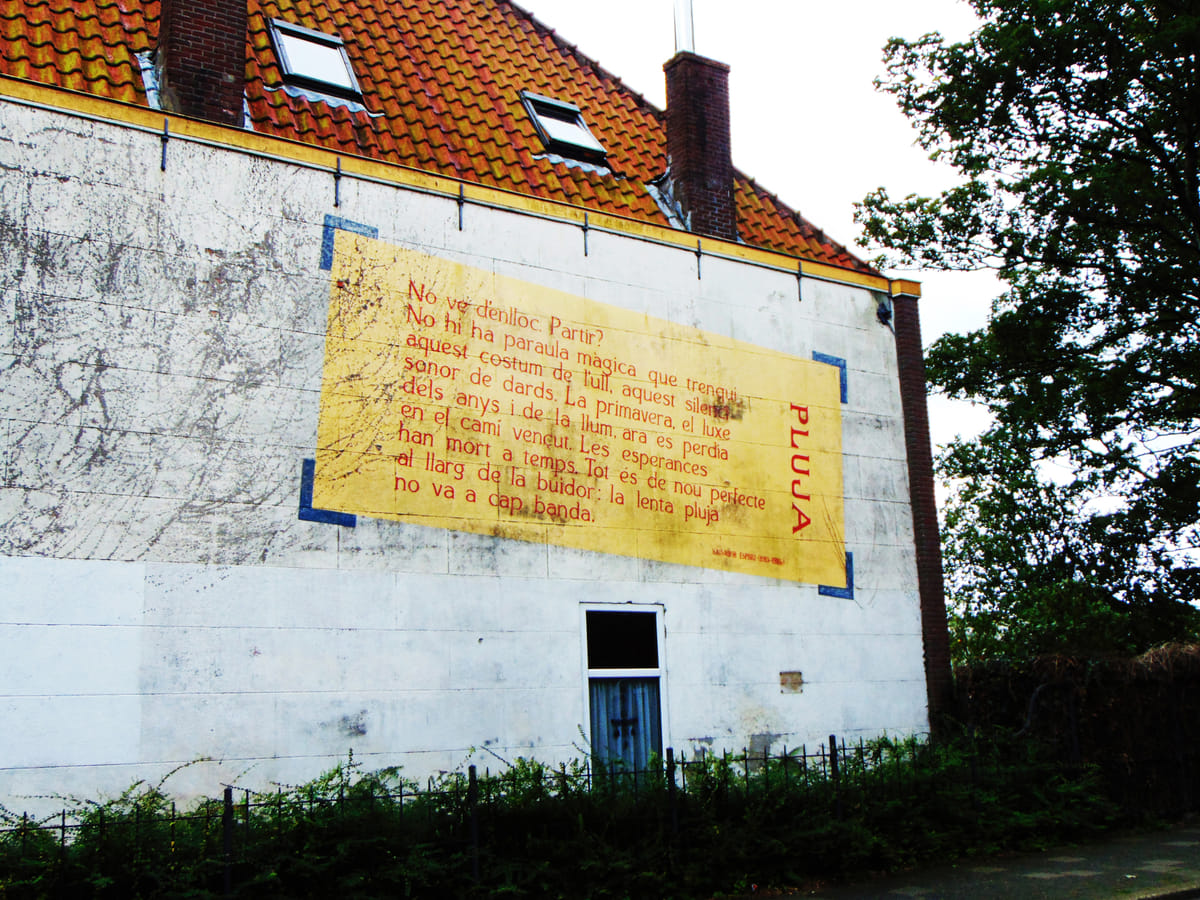 No ve d'enlloc. Partir?
No hi ha paraula màgica que trenqui
aquest costum de l'ull, aquest silenci
sonor de dards. La primavera, el luxe
dels anys i de la llum, ara es perdia
en el camí vençut. Les esperances
han mort a temps. Tot és de nou perfecte
al llarg de la buidor: la lenta pluja
no va a cap banda.
PLUJA
SALVADOR ESPRIU (1913-1985)